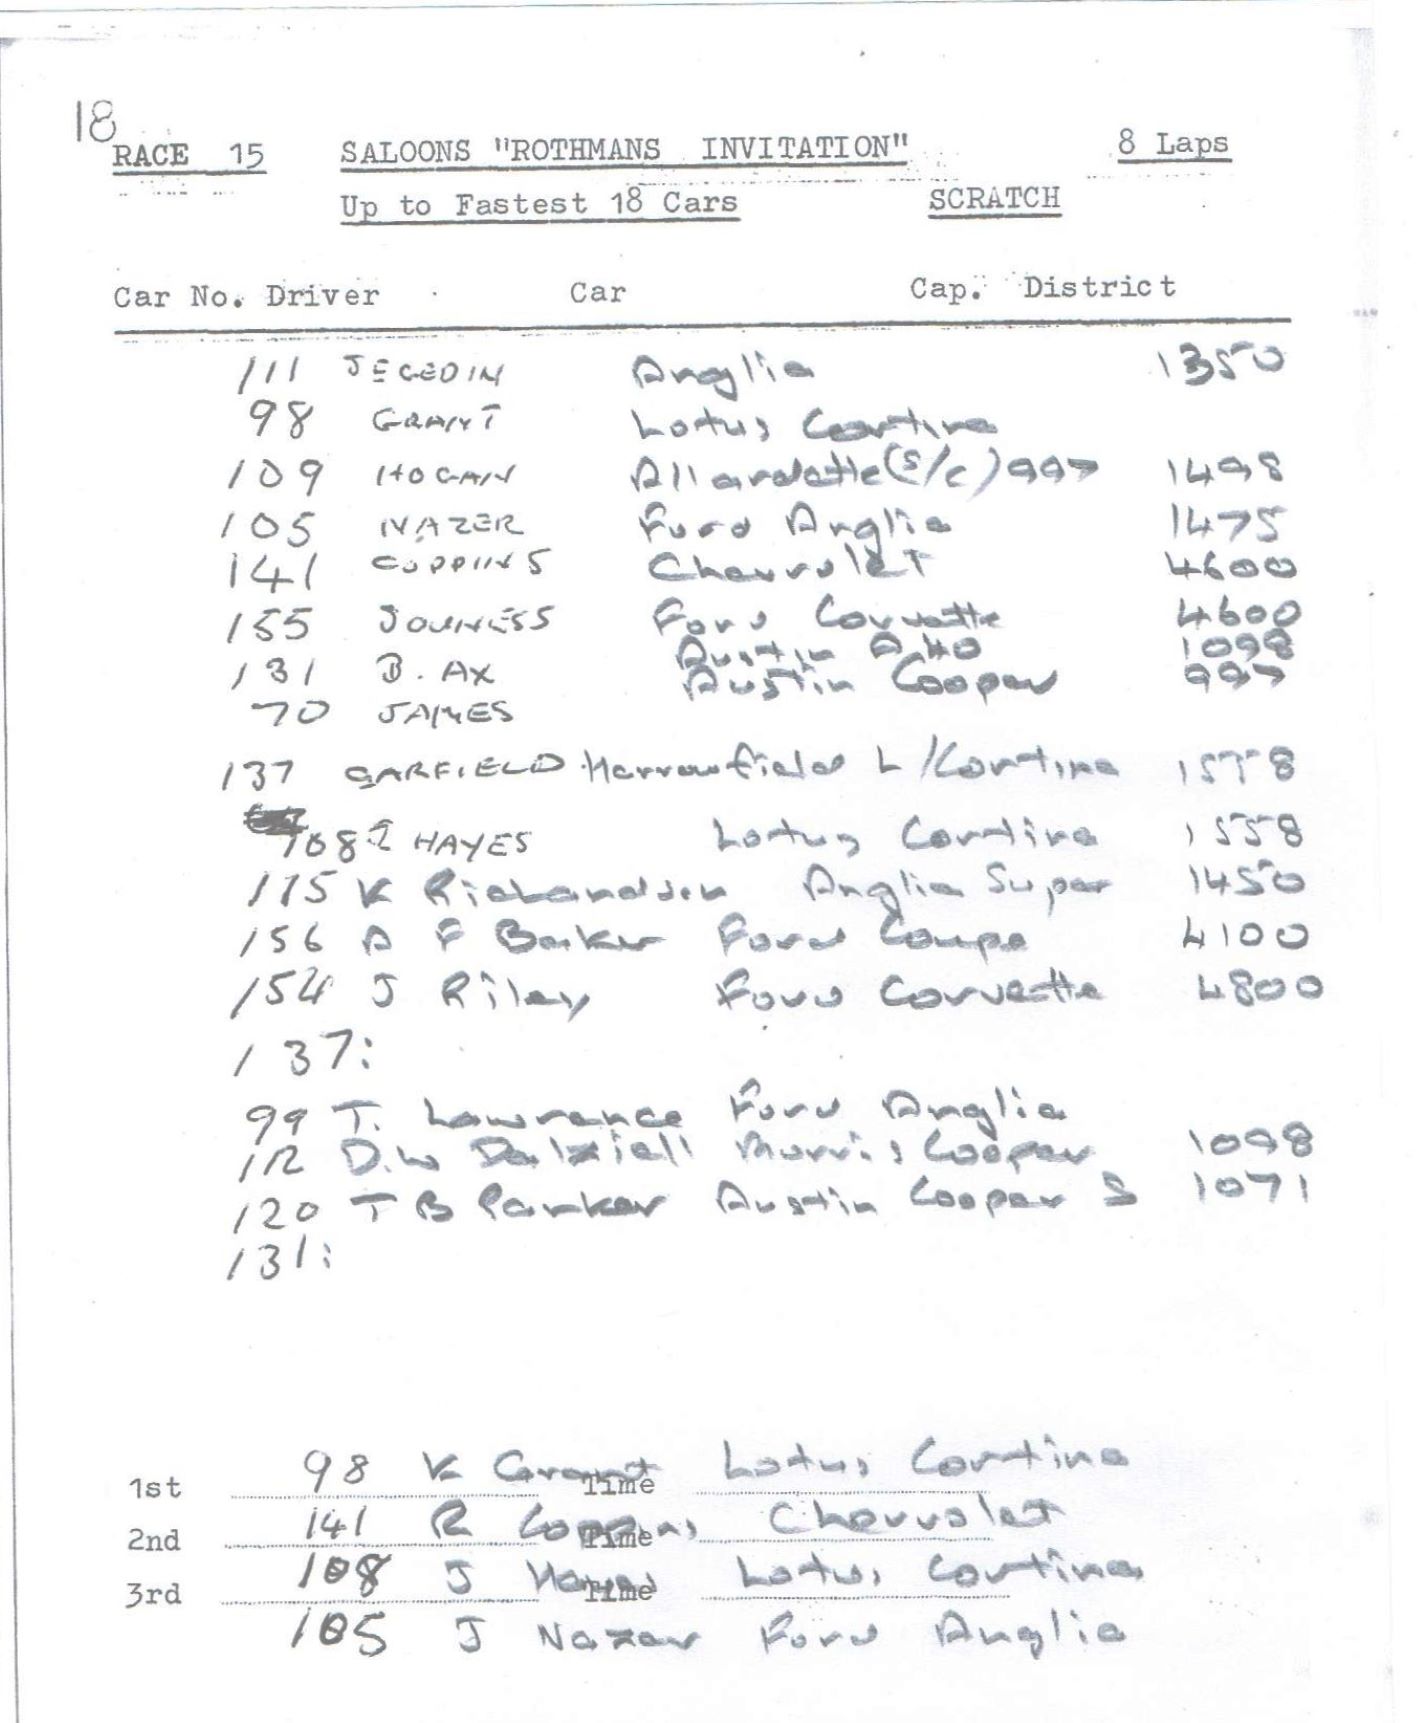 18
RACE 15 SALOONS "ROTHMANS INVITATION" 8 Laps
Up to Fastest 18 Cars SCRATCH
Car No. Driver Car Cap. District
111 JEGEDIN Anglia 1350
98 GRANT Lotus Cortina
109 HOGAN Allardette (S/C) 997 1498
105 NAZER Ford Anglia 1475
141 COPPINS Chevrolet 4600
155 Ford Corvette 4600
Austin A.40 1098
131 B. AX Austin Cooper 997
70 JAMES
137 GARFIELD Harrowfield L/Cortina 1558
108 J HAYES Lotus Cortina 1558
115 K Richardson Anglia Super 1450
156 A F Barker Ford Coupe 4100
154 J Riley Ford Corvette 4800
137:
99 T. Lawrence Ford Anglia
112 D.W Dalziell Morris Cooper 1098
120 T B Parker Austin Cooper S 1071
131:
1st 98 K Grant Time Lotus Cortina
2nd 141 R Coppins Time Chevrolet
3rd 108 J Hayes Time Lotus Cortina
105 J Nazer Ford Anglia